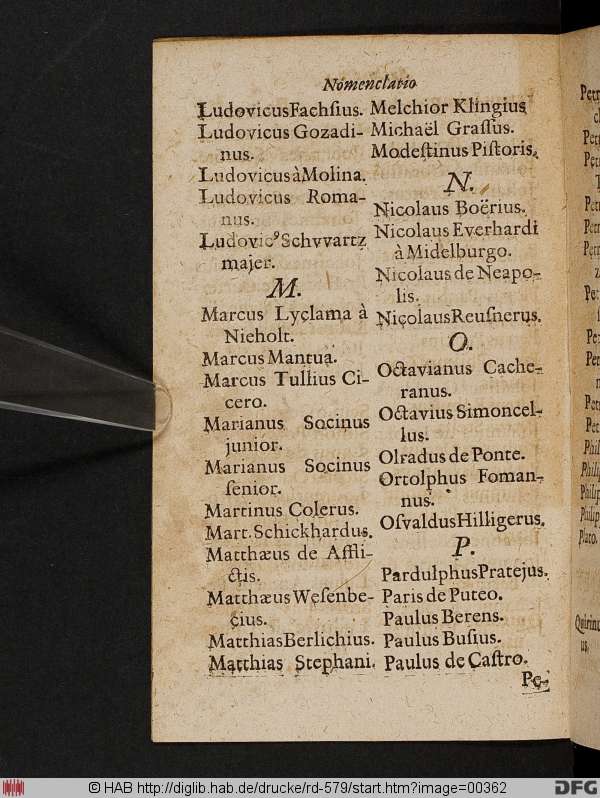 Nomenclatio
Ludovicus Fachsius.
Ludovicus Gozadi-
nus.
Ludovicus à Molina.
Ludovicus Roma-
nus.
Ludovicꝰ Schvvartz
majer.
M.
Marcus Lyclama à
Nieholt.
Marcus Mantua.
Marcus Tullius Ci-
cero.
Marianus Socinus
junior.
Marianus Socinus
ſenior.
Martinus Colerus.
Mart. Schickhardus.
Matthæus de Affli-
ctis.
Matthæus Weſenbe-
cius.
Matthias Berlichius.
Matthias Stephani.
Melchior Klingius
Michaël Graſſus.
Modeſtinus Piſtoris.
N.
Nicolaus Boërius.
Nicolaus Everhardi
à Midelburgo.
Nicolaus de Neapo-
lis.
Nicolaus Reuſnerus.
O.
Octavianus Cache-
ranus.
Octavius Simoncel-
lus.
Olradus de Ponte.
Ortolphus Foman-
nus.
Oſvaldus Hilligerus.
P.
Pardulphus Pratejus.
Paris de Puteo.
Paulus Berens.
Paulus Buſius.
Paulus de Caſtro.
Pe-
Petr
Petr
Petr
Petr
Petr
Petr
Philip
Philip
Plato.
Quirin
us.
© HAB http://diglib.hab.de/drucke/rd-579/start.htm?image=00362
DFG